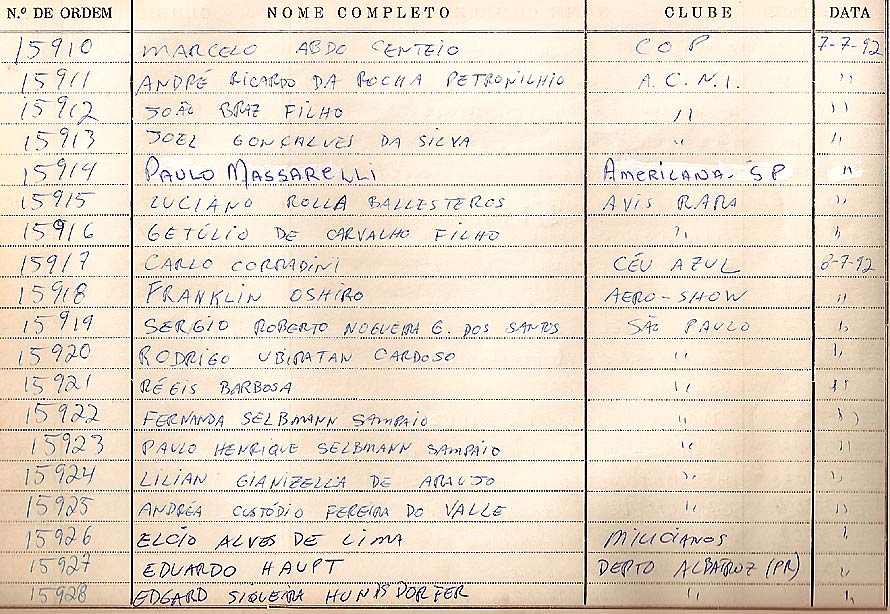 N.º DE ORDEM NOME COMPLETO CLUBE DATA
15910 MARCELO ABDO CENTEIO COP 7-7-92
15911 ANDRÉ RICARDO DA ROCHA PETRONILHIO A.C.N.I. "
15912 JOÃO BRAZ FILHO " "
15913 JOEL GONÇALVES DA SILVA " "
15914 PAULO MASSARELLI AMERICANA-SP "
15915 LUCIANO ROLLA BALLESTEROS AVIS RARA "
15916 GETÚLIO DE CARVALHO FILHO " "
15917 CARLO CORRADINI CÉU AZUL 8-7-92
15918 FRANKLIN OSHIRO AERO-SHOW "
15919 SERGIO ROBERTO NOGUEIRA G. DOS SANTOS SÃO PAULO "
15920 RODRIGO UBIRATAN CARDOSO " "
15921 RÉGIS BARBOSA " "
15922 FERNANDA SELBMANN SAMPAIO " "
15923 PAULO HENRIQUE SELBMANN SAMPAIO " "
15924 LILIAN GIANIZELLA DE ARAUJO " "
15925 ANDRÉA CUSTÓDIO FEREIRA DO VALLE " "
15926 ELCIO ALVES DE LIMA MILICIANOS "
15927 EDUARDO HAUPT DEPTO ALBATROZ (PR) "
15928 EDGARD SIQUEIRA " "